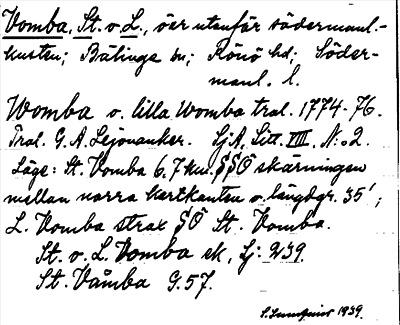 Vomba, St. o. L., öer utanför södermanl.-
kusten; Bälinge sn; Rönö hd; Söder-
manl. l.
Womba o. lilla Womba tral. 1774-76.
Tral. G. A. Lejonanker. SjA, Litt. VIII, N:o 2.
Läge: St. Vomba 6.7 km. SSÖ skärningen
mellan norra kartkanten o. längdgr. 35';
L. Vomba strax SÖ St. Vomba.
St. o. L. Vomba ek, Sj: 239.
St. Våmba G. 57.
1939.